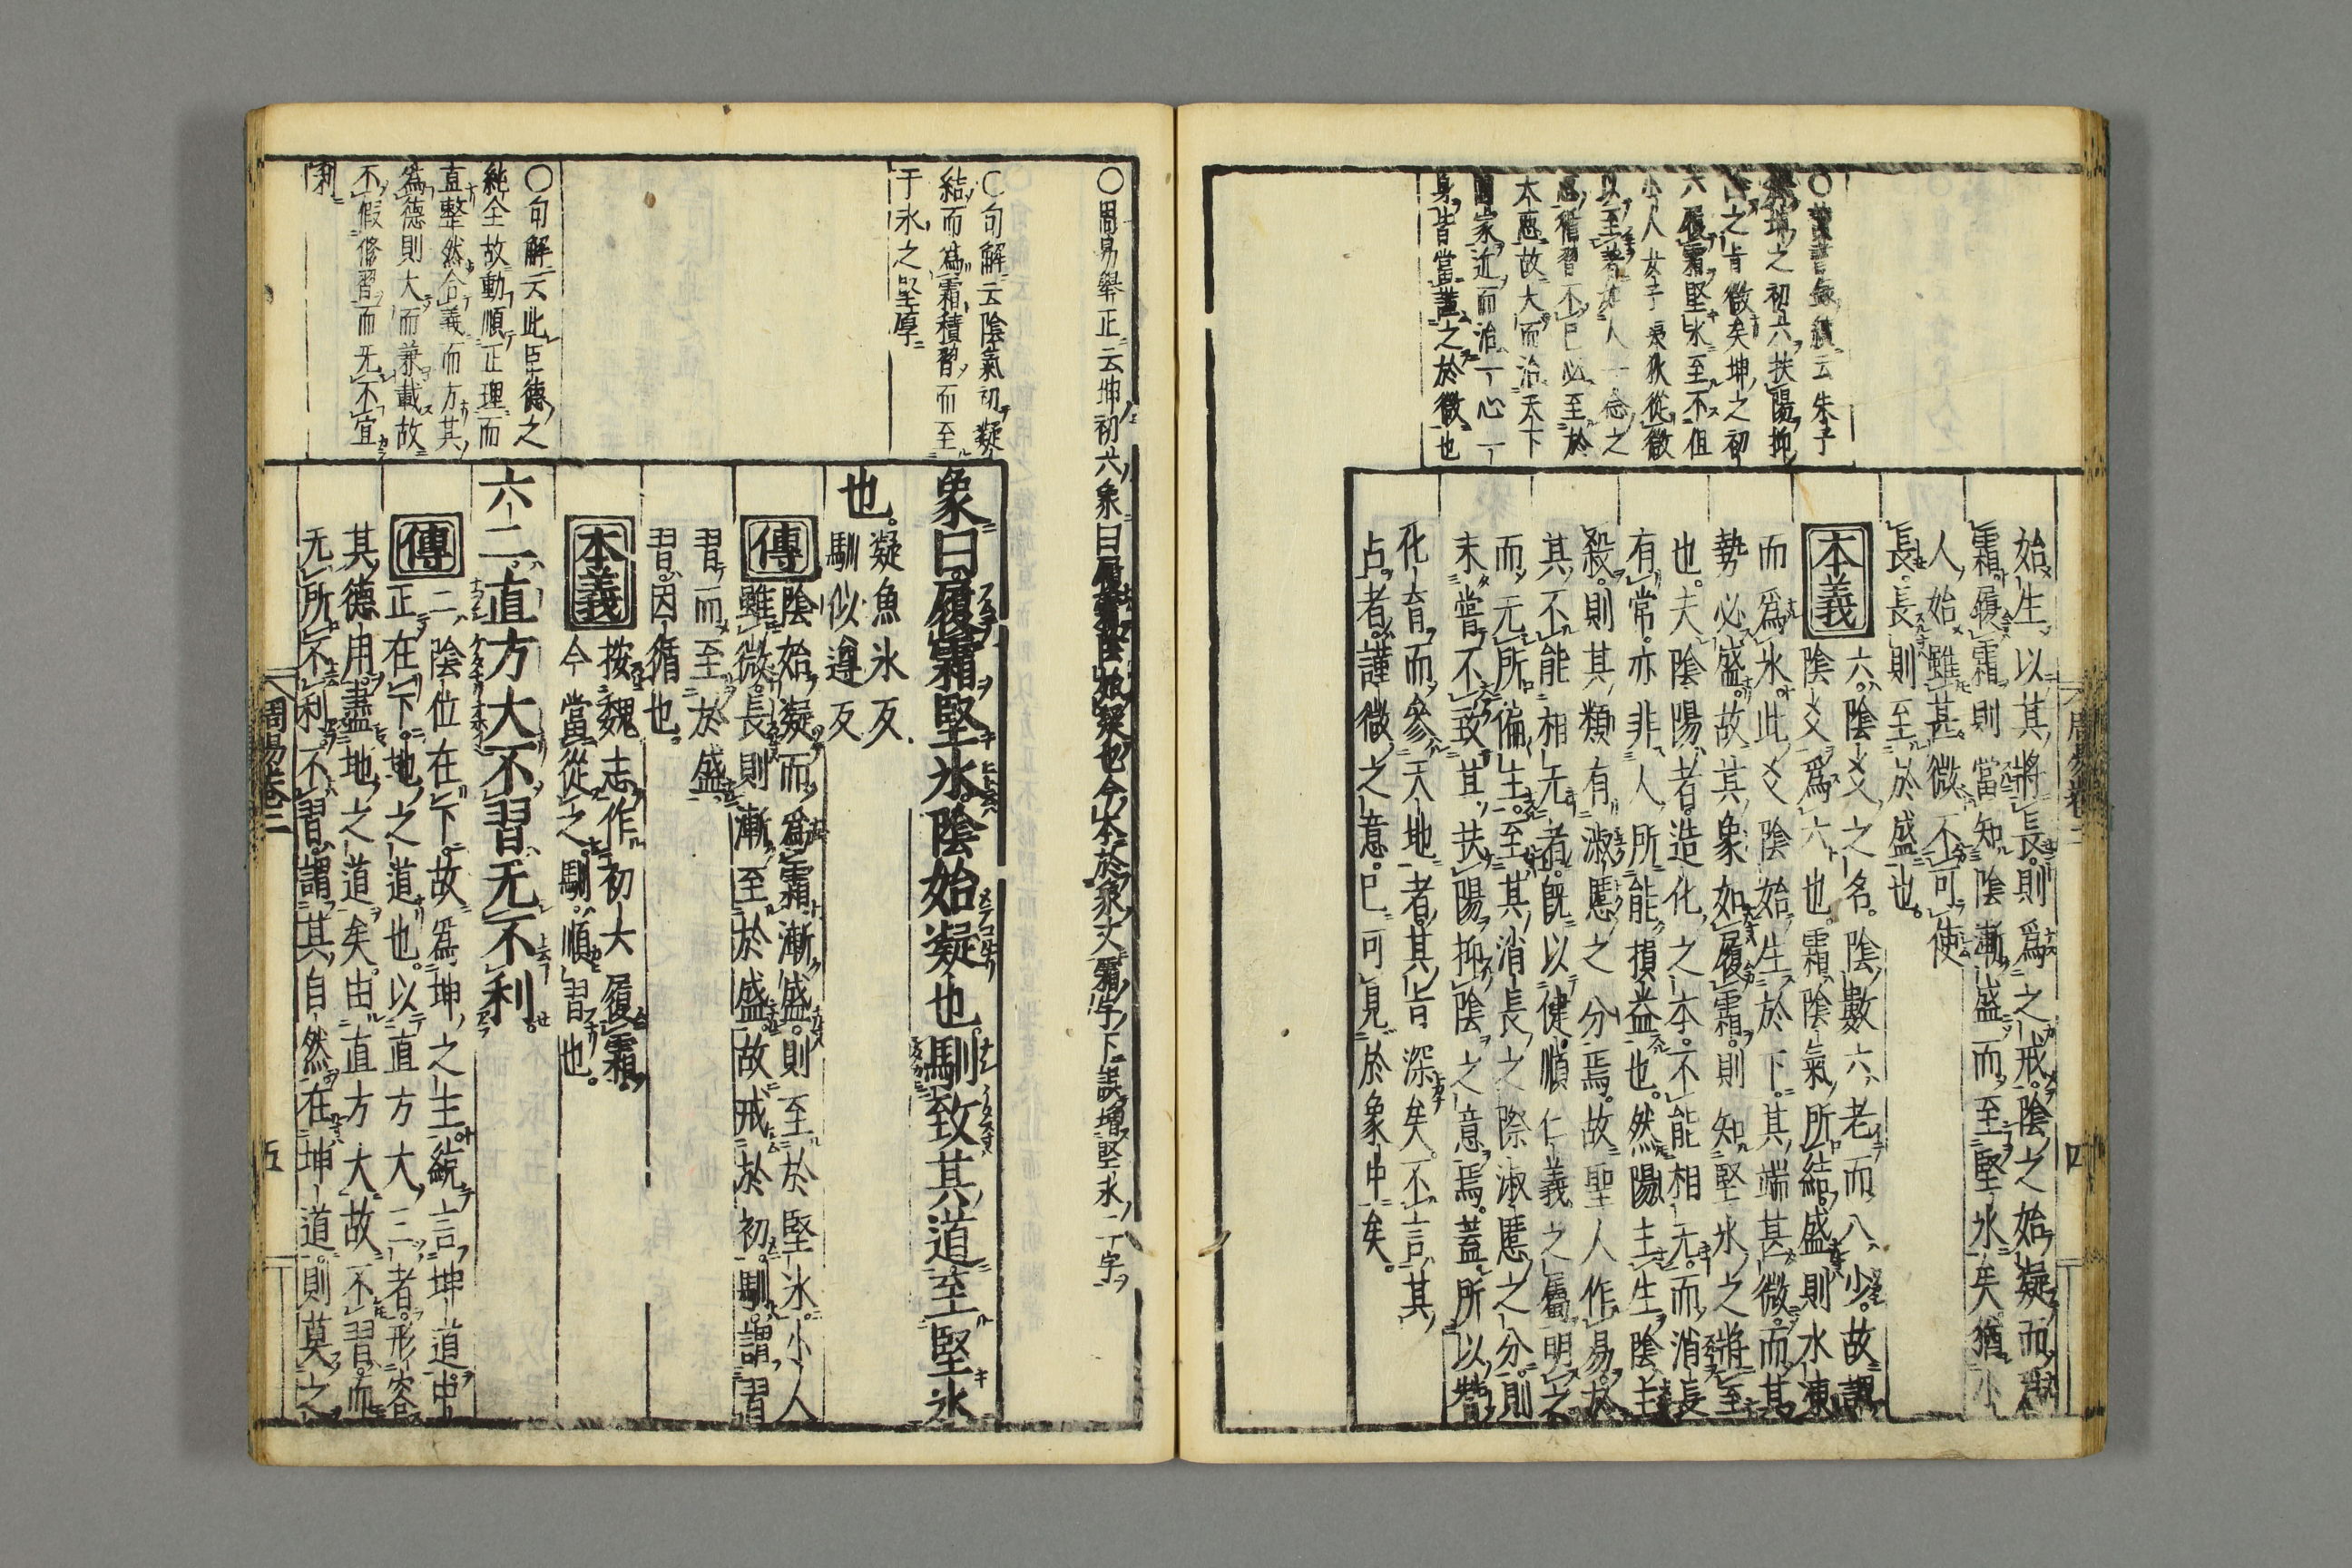 始生以其將長則爲之戒陰之始凝而爲
霜履霜則當知陰漸盛而至堅氷矣猶小
人始雖甚微不可使
長長則至於盛也
本義
六陰爻之名陰數六老而八少故謂
陰爻爲六也霜陰氣所結盛則水凍
而爲氷此爻陰始生於下其端甚微而其
勢必盛故其象如履霜則知堅氷之將至
也夫陰陽者造化之本不能相无而消長
有常亦非人所能損益也然陽主生陰主
殺則其類有淑慝之分焉故聖人作易於
其不能相无者既以健順仁義之屬明之
而无所偏主至其消長之際淑慝之分則
未嘗不致其扶陽抑陰之意焉蓋所以賛
化育而參天地者其旨深矣不言其
占者謹微之意已可見於象中矣
云朱子
坤之初六扶陽抑
之旨微矣坤之初
六履霜堅氷至不但
小人女子夷狄從微
以至著人一念之
循習不已必至於
大惡故大而治天下
國家近而治一心一
身皆當謹之於微也
四
○周易舉正云坤初六象曰履霜陰始凝也今本於象文霜字下誤增堅氷二字
○句解云陰氣初凝
結而爲霜積習而至
于氷之堅厚
○句解云此臣德之
純全故動順正理而
直整然合義而方其
爲德則大而兼載故
不假修習而无不宜
利
象曰履霜堅氷陰始凝也馴致其道至堅氷
也
凝魚氷反
馴似遵反
傳
陰始凝而爲霜漸盛則至於堅氷小人
雖微長則漸至於盛故戒於初馴謂習
習而至於盛
習因循也
本義
按魏志作初六履霜
今當從之馴順習也
六二直方大不習无不利
傳
二陰位在下故爲坤之主統言坤道中
正在下地之道也以直方大三者形容
其德用盡地之道矣由直方大故不習而
无所不利不習謂其自然在坤道則莫之
周易卷二
五